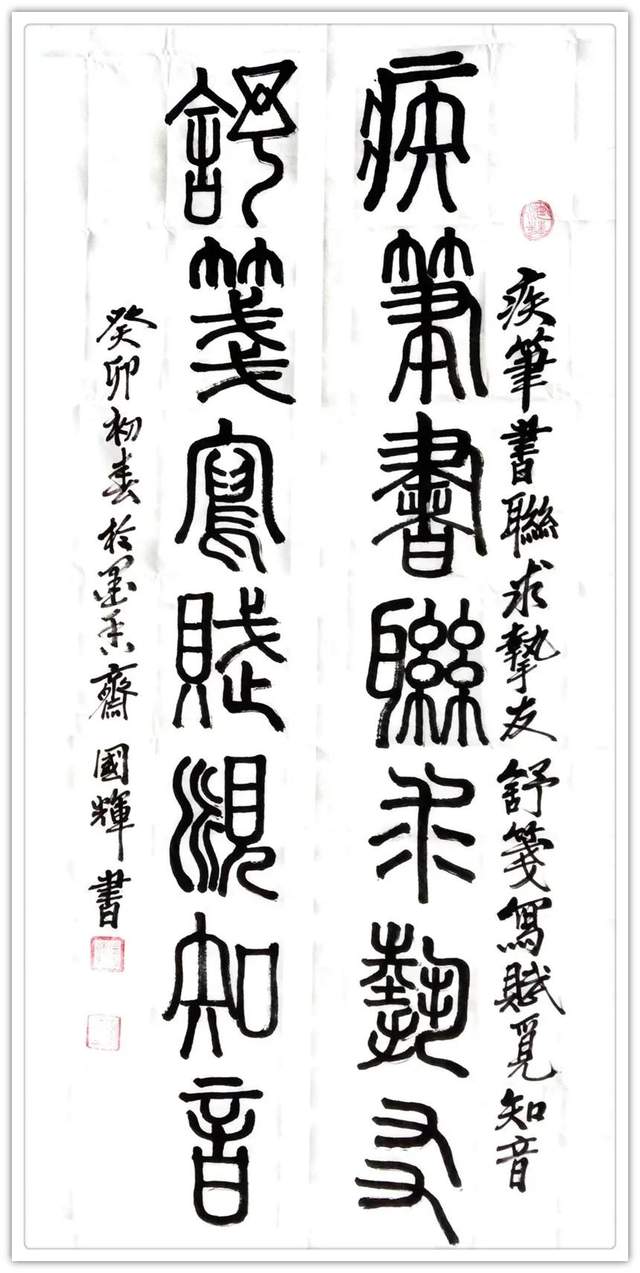 疾筆書聯求摯友舒箋寫賦覓知音
疾筆書聯求摯友
舒箋寫賦覓知音
癸卯初春於墨香齋國輝書